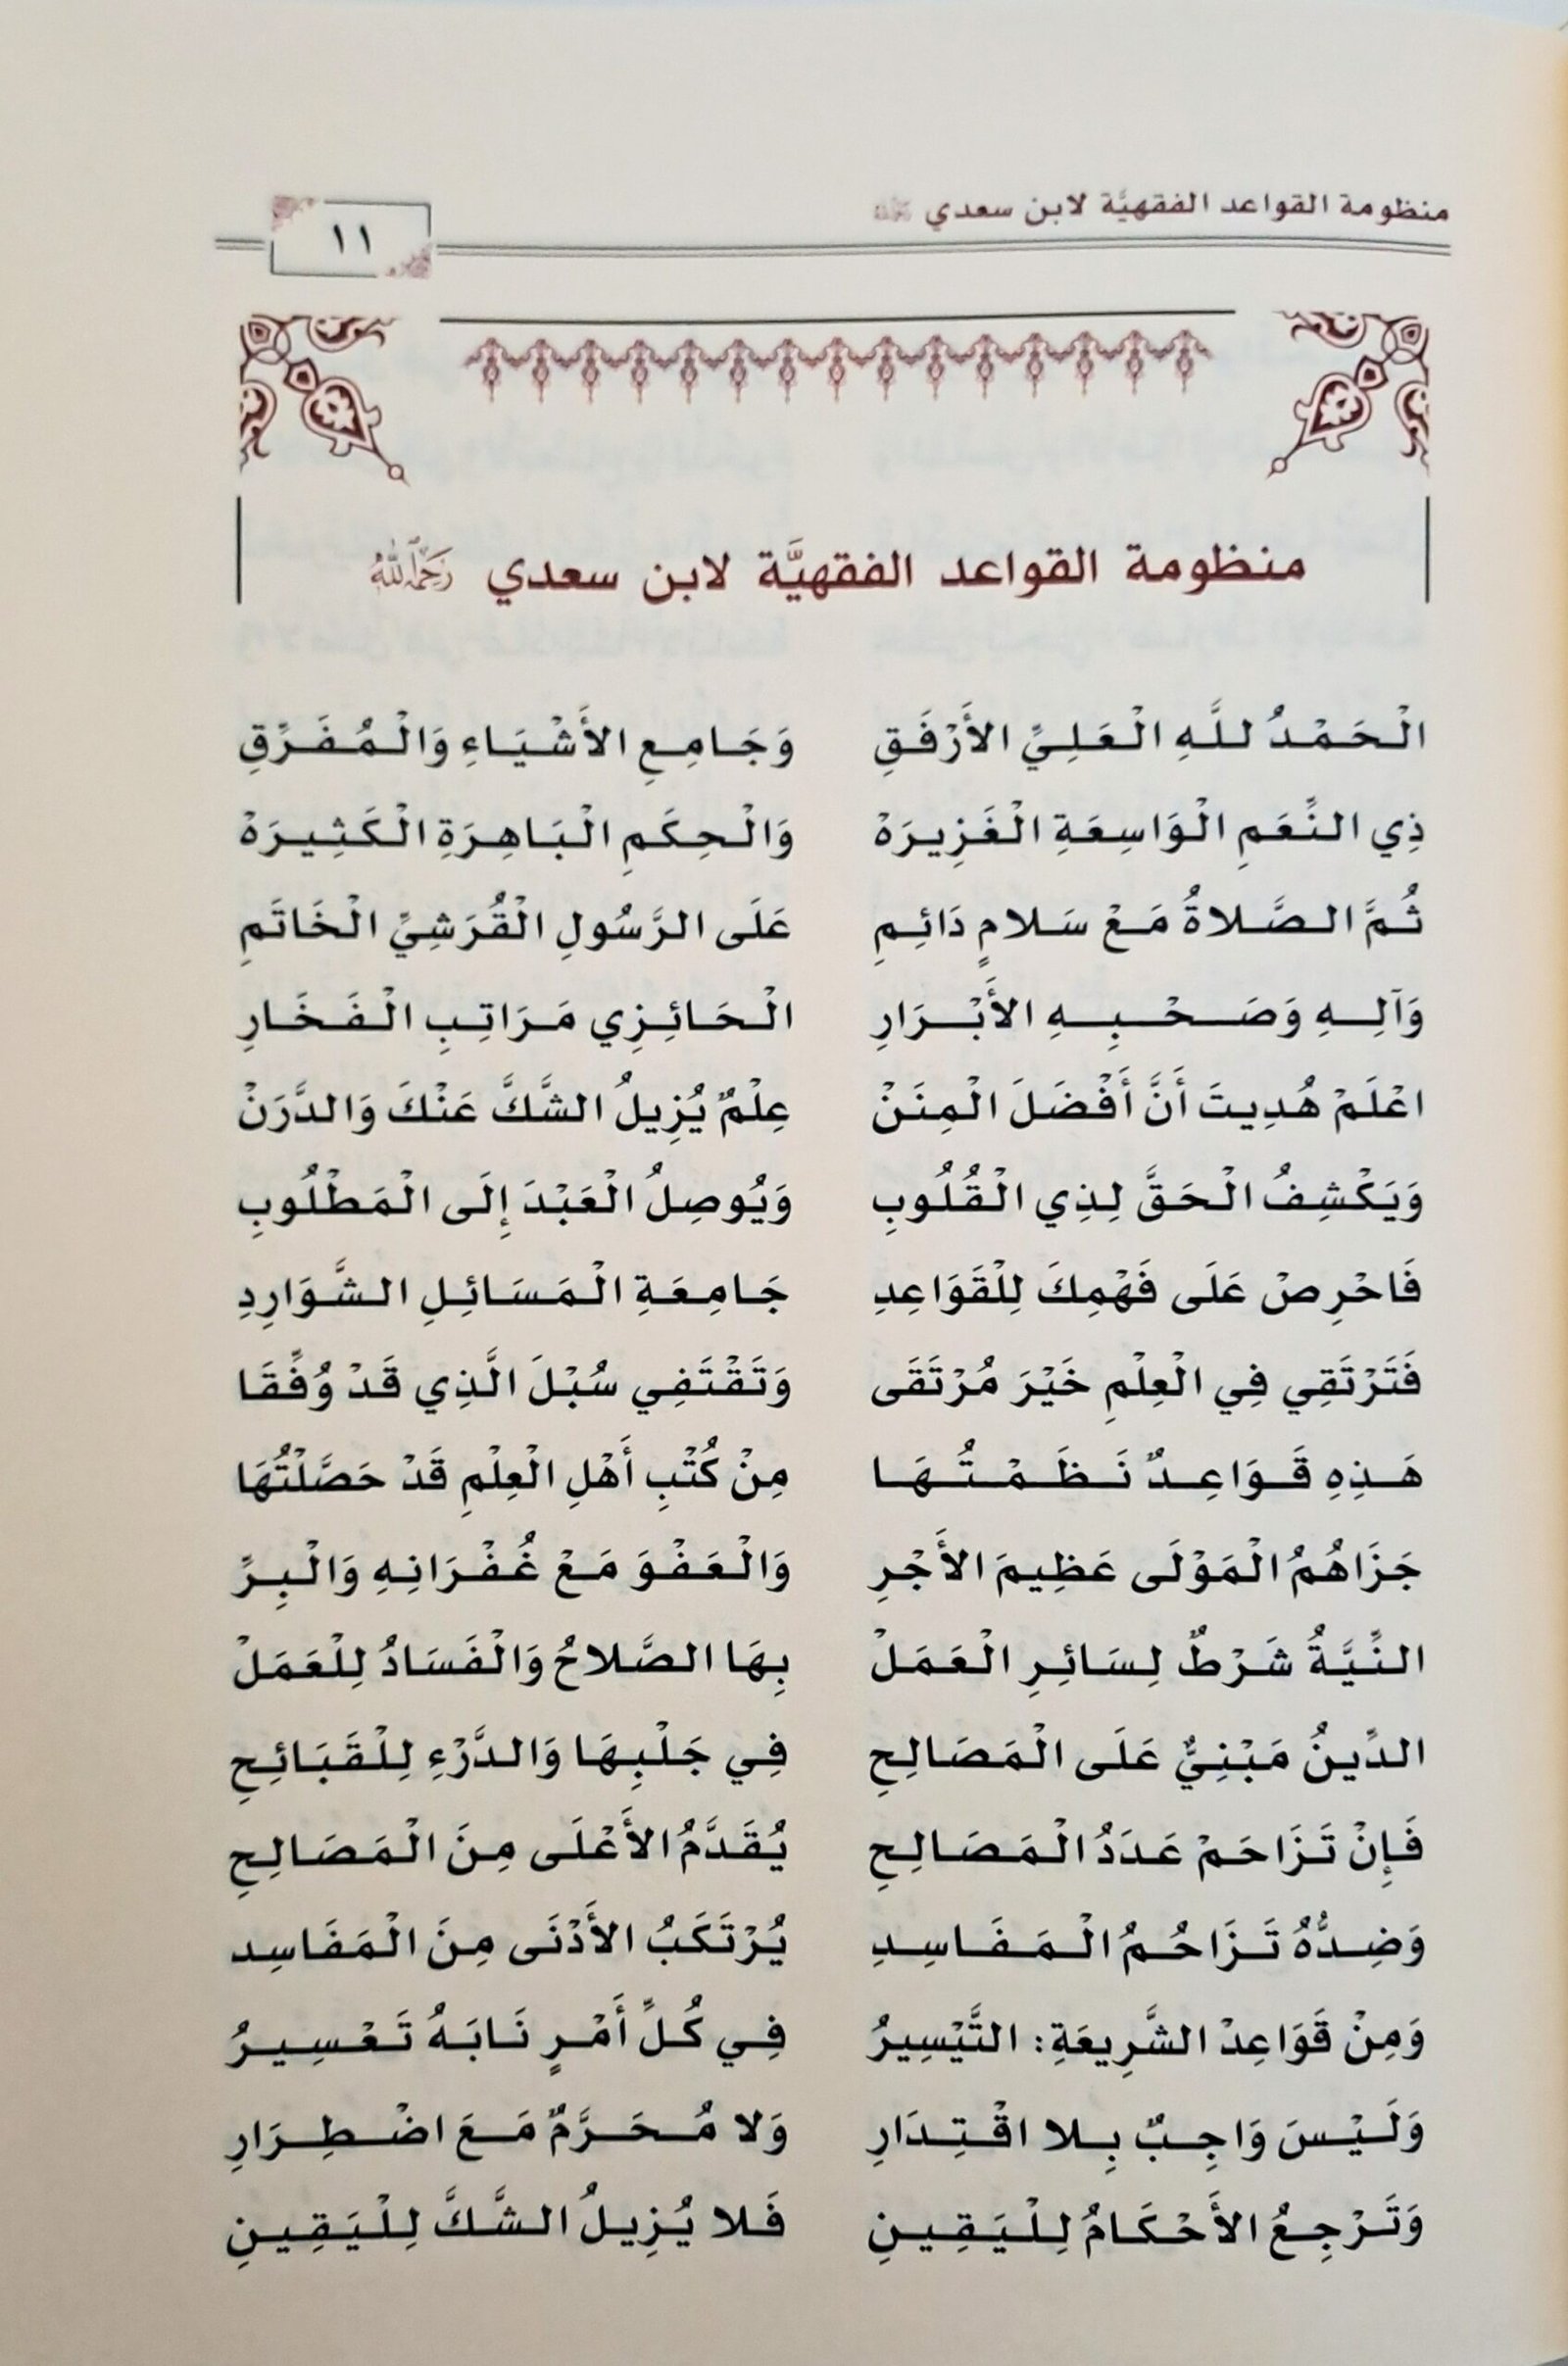 منظومة القواعد الفقهيَّة لابن سعدي
١١
منظومة القواعد الفقهيَّة لابن سعدي رَحِمَهُ اللَّهُ
الْحَمْدُ للَّهِ الْعَلِيِّ الأَرْفَقِ وَجَامِعِ الأَشْيَاءِ وَالْمُفَرِّقِ
ذِي النِّعَمِ الْوَاسِعَةِ الْغَزِيرَهْ وَالْحِكَمِ الْبَاهِرَةِ الْكَثِيرَهْ
ثُمَّ الصَّلاةُ مَعْ سَلامٍ دَائِمِ عَلَى الرَّسُولِ الْقُرَشِيِّ الْخَاتَمِ
وَآلِهِ وَصَحْبِهِ الأَبْرَارِ الْحَائِزِي مَرَاتِبِ الْفَخَارِ
اعْلَمْ هُدِيتَ أَنَّ أَفْضَلَ الْمِنَنْ عِلْمٌ يُزِيلُ الشَّكَّ عَنْكَ وَالدَّرَنْ
وَيَكْشِفُ الْحَقَّ لِذِي الْقُلُوبِ وَيُوصِلُ الْعَبْدَ إِلَى الْمَطْلُوبِ
فَاحْرِصْ عَلَى فَهْمِكَ لِلْقَوَاعِدِ جَامِعَةِ الْمَسَائِلِ الشَّوَارِدِ
فَتَرْتَقِي فِي الْعِلْمِ خَيْرَ مُرْتَقَى وَتَقْتَفِي سُبْلَ الَّذِي قَدْ وُفِّقَا
هَذِهِ قَوَاعِدٌ نَظَمْتُهَا مِنْ كُتْبِ أَهْلِ الْعِلْمِ قَدْ حَصَّلْتُهَا
جَزَاهُمُ الْمَوْلَى عَظِيمَ الأَجْرِ وَالْعَفْوَ مَعْ غُفْرَانِهِ وَالْبِرِّ
النِّيَّةُ شَرْطٌ لِسَائِرِ الْعَمَلْ بِهَا الصَّلاحُ وَالْفَسَادُ لِلْعَمَلْ
الدِّينُ مَبْنِيٌّ عَلَى الْمَصَالِحِ فِي جَلْبِهَا وَالدَّرْءِ لِلْقَبَائِحِ
فَإِنْ تَزَاحَمْ عَدَدُ الْمَصَالِحِ يُقَدَّمُ الأَعْلَى مِنَ الْمَصَالِحِ
وَضِدُّهُ تَزَاحُمُ الْمَفَاسِدِ يُرْتَكَبُ الأَدْنَى مِنَ الْمَفَاسِد
وَمِنْ قَوَاعِدْ الشَّرِيعَةِ: التَّيْسِيرُ فِي كُلِّ أَمْرٍ نَابَهُ تَعْسِيرُ
وَلَيْسَ وَاجِبٌ بِلا اقْتِدَارِ وَلا مُحَرَّمٌ مَعَ اضْطِرَارِ
وَتَرْجِعُ الأَحْكَامُ لِلْيَقِينِ فَلا يُزِيلُ الشَّكَّ لِلْيَقِينِ